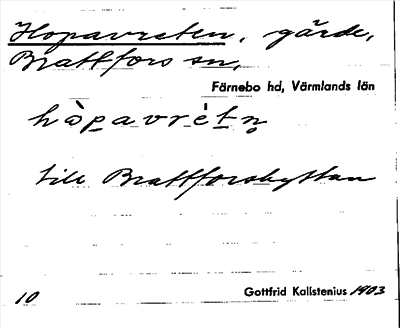 Hopavreten, gärde,
Brattfors sn,
Färnebo hd, Värmlands län
hòpavrétn̥
till Brattforshyttan
10
Gottfrid Kallstenius 1903